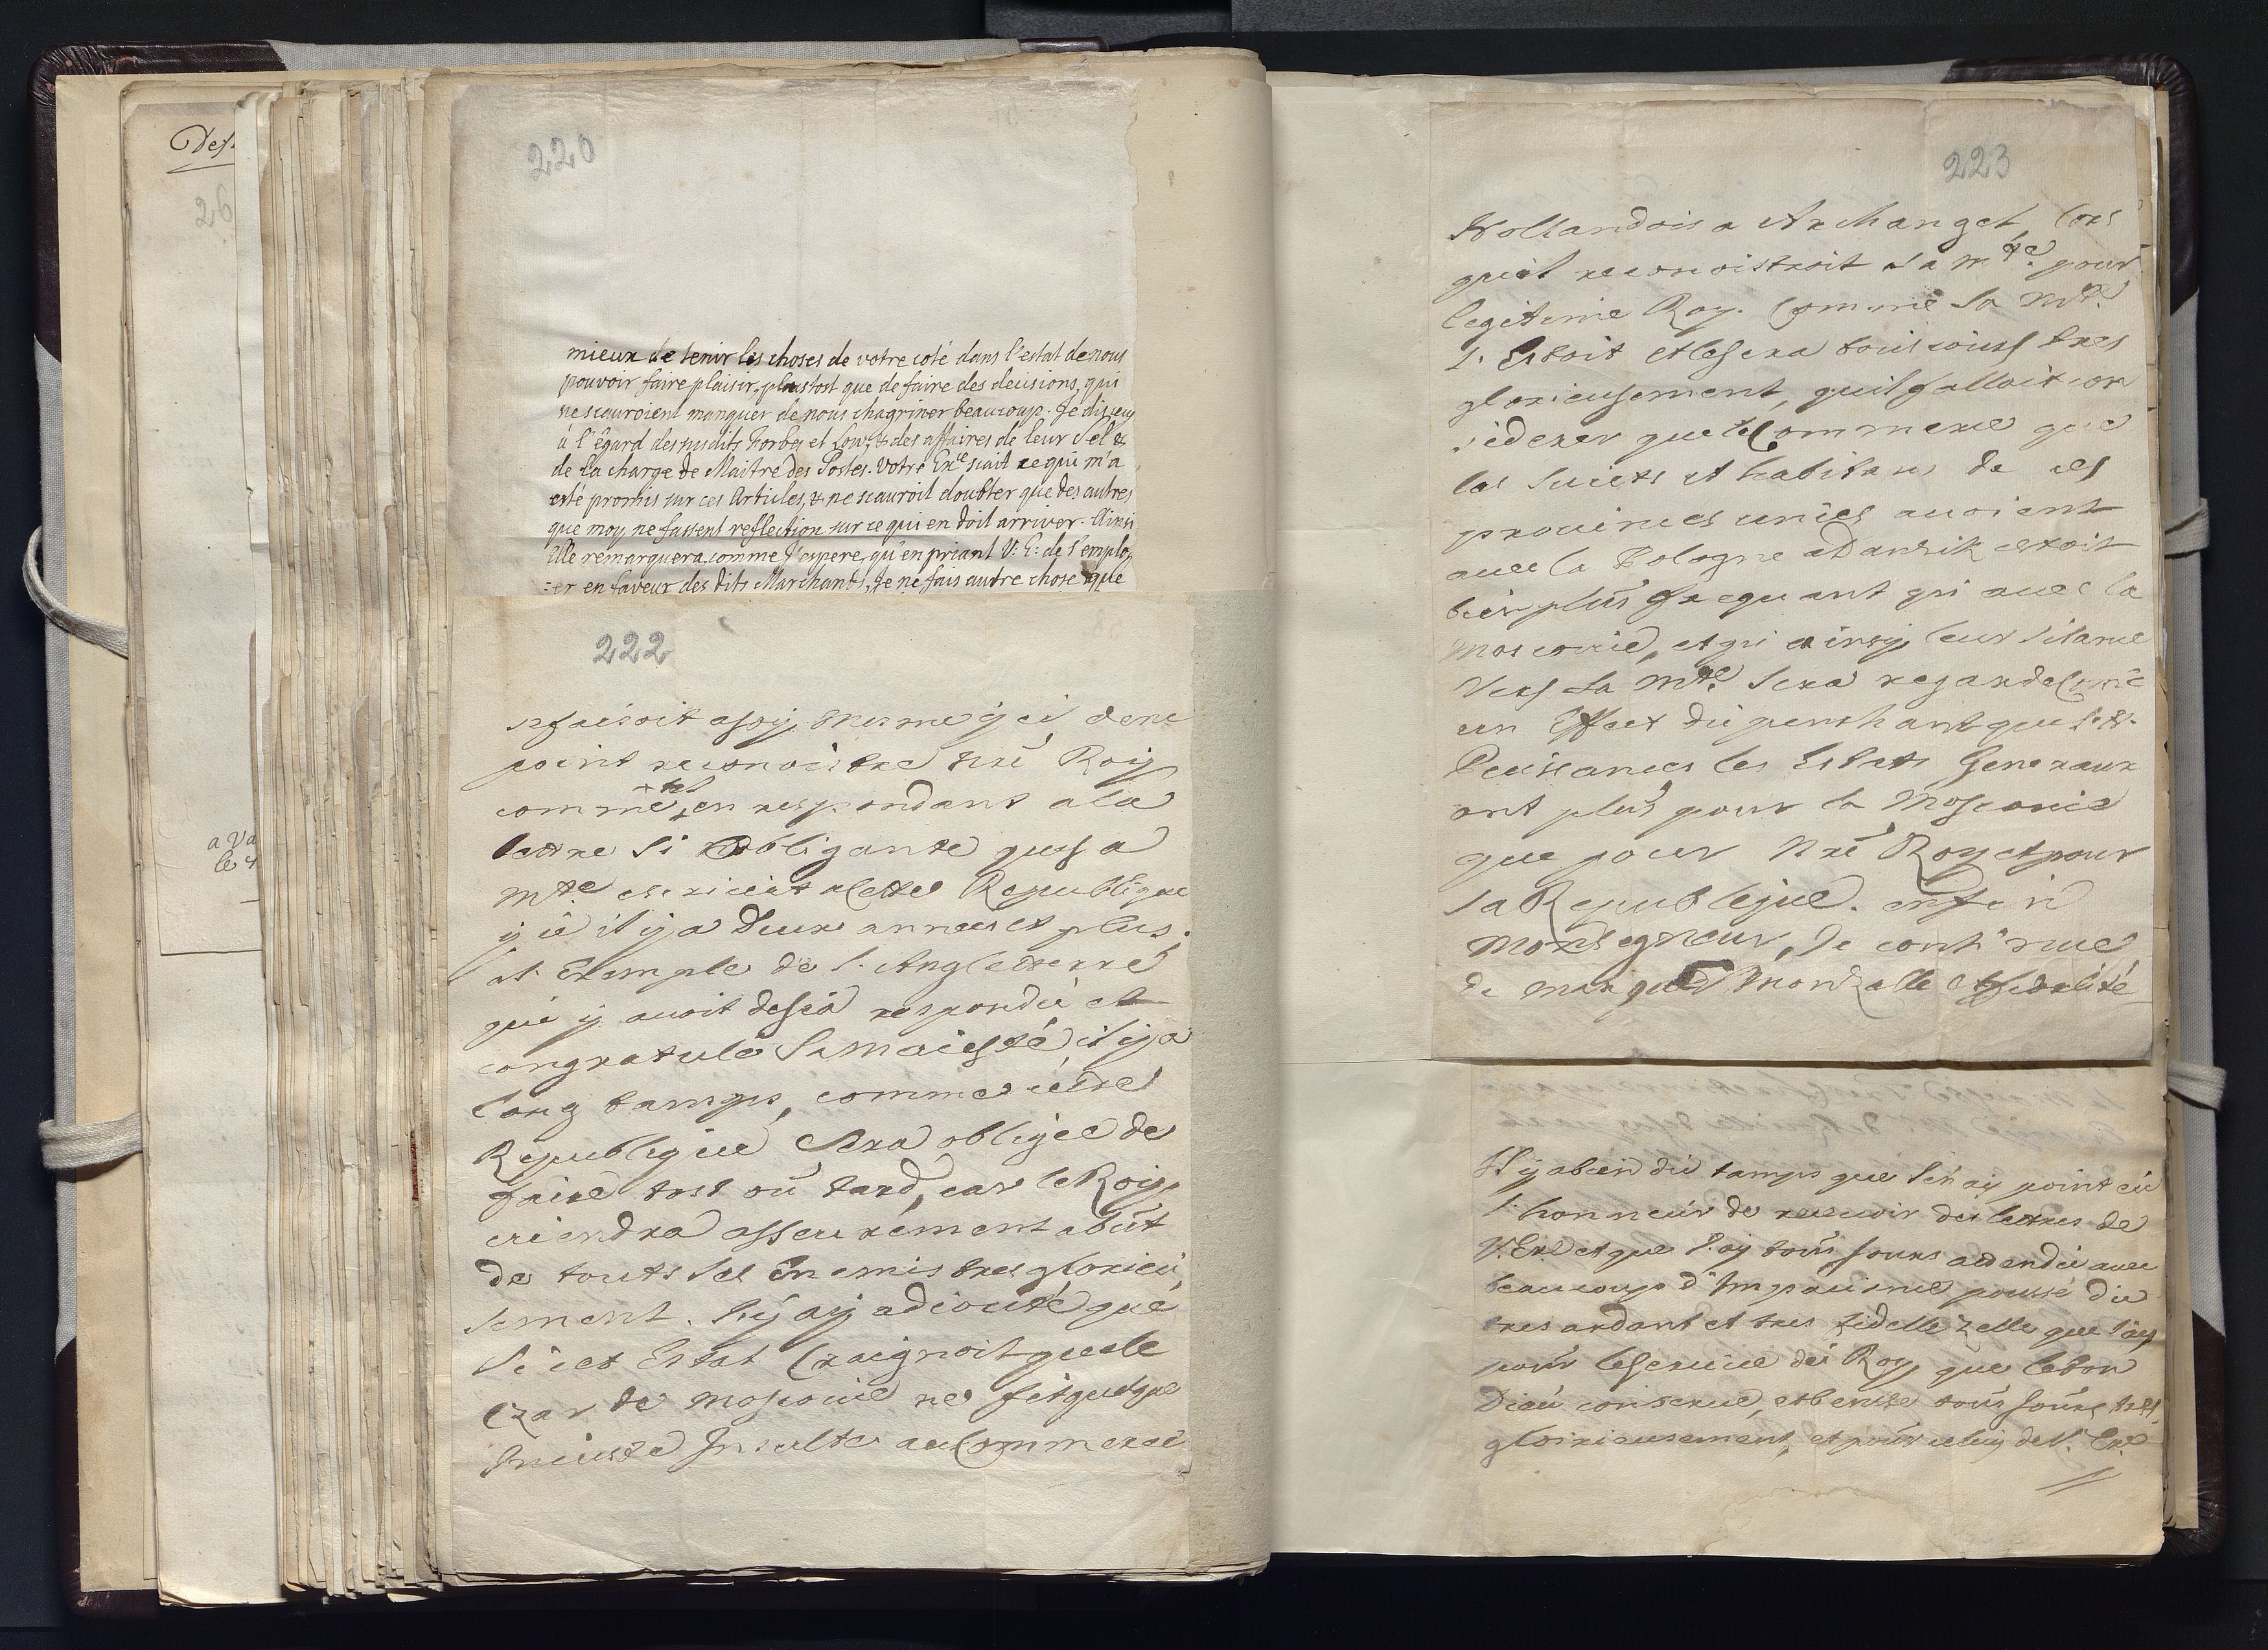 Des.
26
a Va
le 4
220
mieux de tenir les choses de votre coté dans l'estat de nous
pouvoir faire plaisir, plustost que de faire des decisions, qui
ne scauroient manquer de nous chagriner beaucoup. Je dis ceci
à l'égard des susdits Forbes et Low, & des affaires de leur Sel &
de la charge de Maitre des Postes. Votre Exce scait ce qui m'a
esté promis sur ces Articles, & ne scauroit doubter que des autres
que moy ne fassent reflection sur ce qui en doit arriver. Ainsi
Elle remarquera, comme J'espere, qu'en priant V: E: de s'emplo,
:er en faveur des dits Marchands, Je ne fais autre chose que
222
faisoit mesme ici, de ne
point reconoistre nrè Roy
comme tel, en respondant a la
lettre si obligante que sa
Mté escriuit a cette Republique
y il y a deux annees et plus.
a l'Exemple de l'Angleterre
qui y auoit desia respondu et
congratulé Sa Maiesté, il y a
long tamps, comme
Republique sera obligee de
faire tost ou tard, car le Roy,
viendra asseurement a but
de touts ses Enemis tres glorieu,
sement. J'y ay adiouté que
si cet Estat Craignoit que le
Czar de Moscouie ne fit quelque
Iniuste Insulte au Commerce
223
Hollandois a Archangel, lors
quil reconoistroit Sa Mté pour
legitime Roy. Comme Sa Mté
l'Estoit et le sera tousiours tres
glorieusement, quil falloit con
siderer que le Commerce que
les suiets et habitans de ces
prouinces unies auoient
auec la Pologne a Danzik estoit
bien plus frequant qui auec la
Moscouie, et qui ainsy leur silance
Vers Sa Mté sera regardé come
un Effect du penchant que L.H.
Puissances les Estats Generaux
ont plus pour la Moscouie
que pour Nrè Roy et pour
sa Republique. enfin
Monsegneur, Je continue
de marquer mon zelle et fidelité
Il y a bien du tamps que Je n'ay point eû
l'honneur de receuoir des lettres de
V. Exce et que J'ay tous Jours attendu auec
beaucoup d'Impacience poussé du
tres ardant et tres fidelle zelle que J'ay
pour le Seruice du Roy, que le bon
Dieu conserue, et benisse tous Jours tres
gloirieusement, et pour celuy de V. Exce